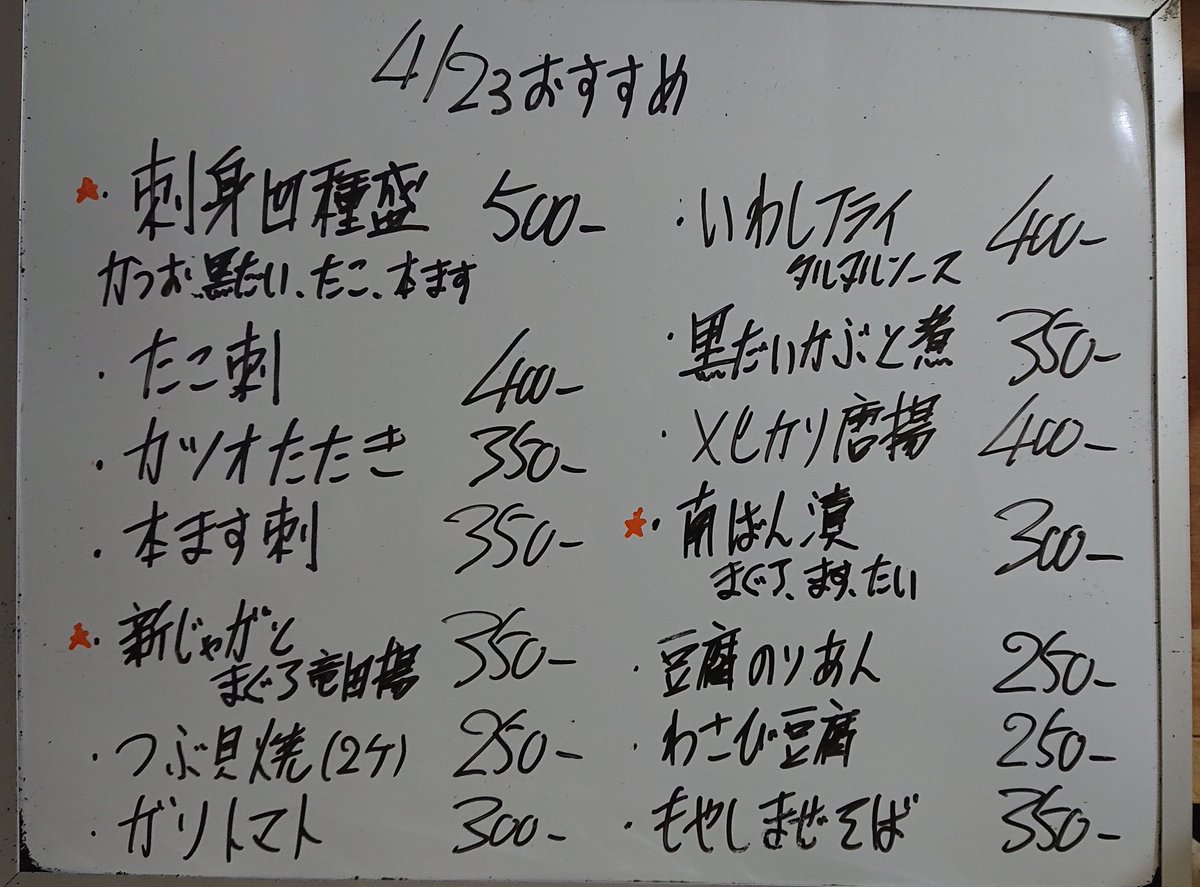 4/23おすすめ
★・刺身四種盛 500-
かつお、黒だい、たこ、本ます
・たこ刺 400-
・カツオたたき 350-
・本ます刺 350-
★・新じゃがと
まぐろ竜田揚 350-
・つぶ貝焼(2ケ) 250-
・ガリトマト 300-
・いわしフライ 400-
タルタルソース
・黒だいかぶと煮 350-
・メヒカリ唐揚 400-
★・南ばん漬 300-
まぐろ、ます、たい
・豆腐のりあん 250-
・わさび豆腐 250-
・もやしまぜそば 350-